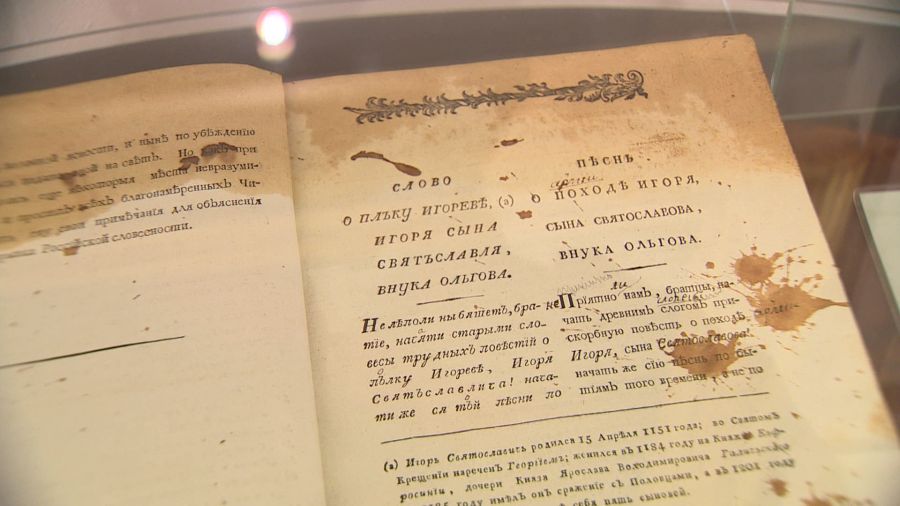 ности, и нынѣ по убѣжденію
на свѣтъ. Но какъ при
нѣкоторыя мѣста невразуми-
всѣхъ благонамѣренныхъ Чи-
свои примѣчанія для объясненія
Россійской словесности.
СЛОВО
О ПЛЪКУ ИГОРЕВѢ, (а)
ИГОРЯ СЫНА
СВЯТЪСЛАВЛЯ,
ВНУКА ОЛЬГОВА.
Не лѣполи ны бяшетъ, бра-
тіе, начяти старыми сло-
весы трудныхъ повѣстій о
пълку Игоревѣ, Игоря
Святъславлича! нача-
ти же ся тъй пѣсни по
ПѢСНЬ
О ПОХОДѢ ИГОРЯ,
СЫНА СВЯТОСЛАВОВА,
ВНУКА ОЛЬГОВА.
ли
Пріятно намъ, братцы, на-
чать древнимъ слогомъ при-
скорбную повѣсть о походѣ
Игоря, сына Святославова!
начать же сію пѣснь по бы-
тіямъ того времени, а не по
(а) Игорь Святославичь родился 15 Апрѣля 1151 года; во Святомъ
Крещеніи нареченъ Георгіемъ; женился въ 1184 году на Княжнѣ Евф-
росиніи, дочери Князя Ярослава Володимировича Галичьскаго
году имѣлъ онъ сраженіе съ Половцами, а въ 1201 году
себя пять сыновей.